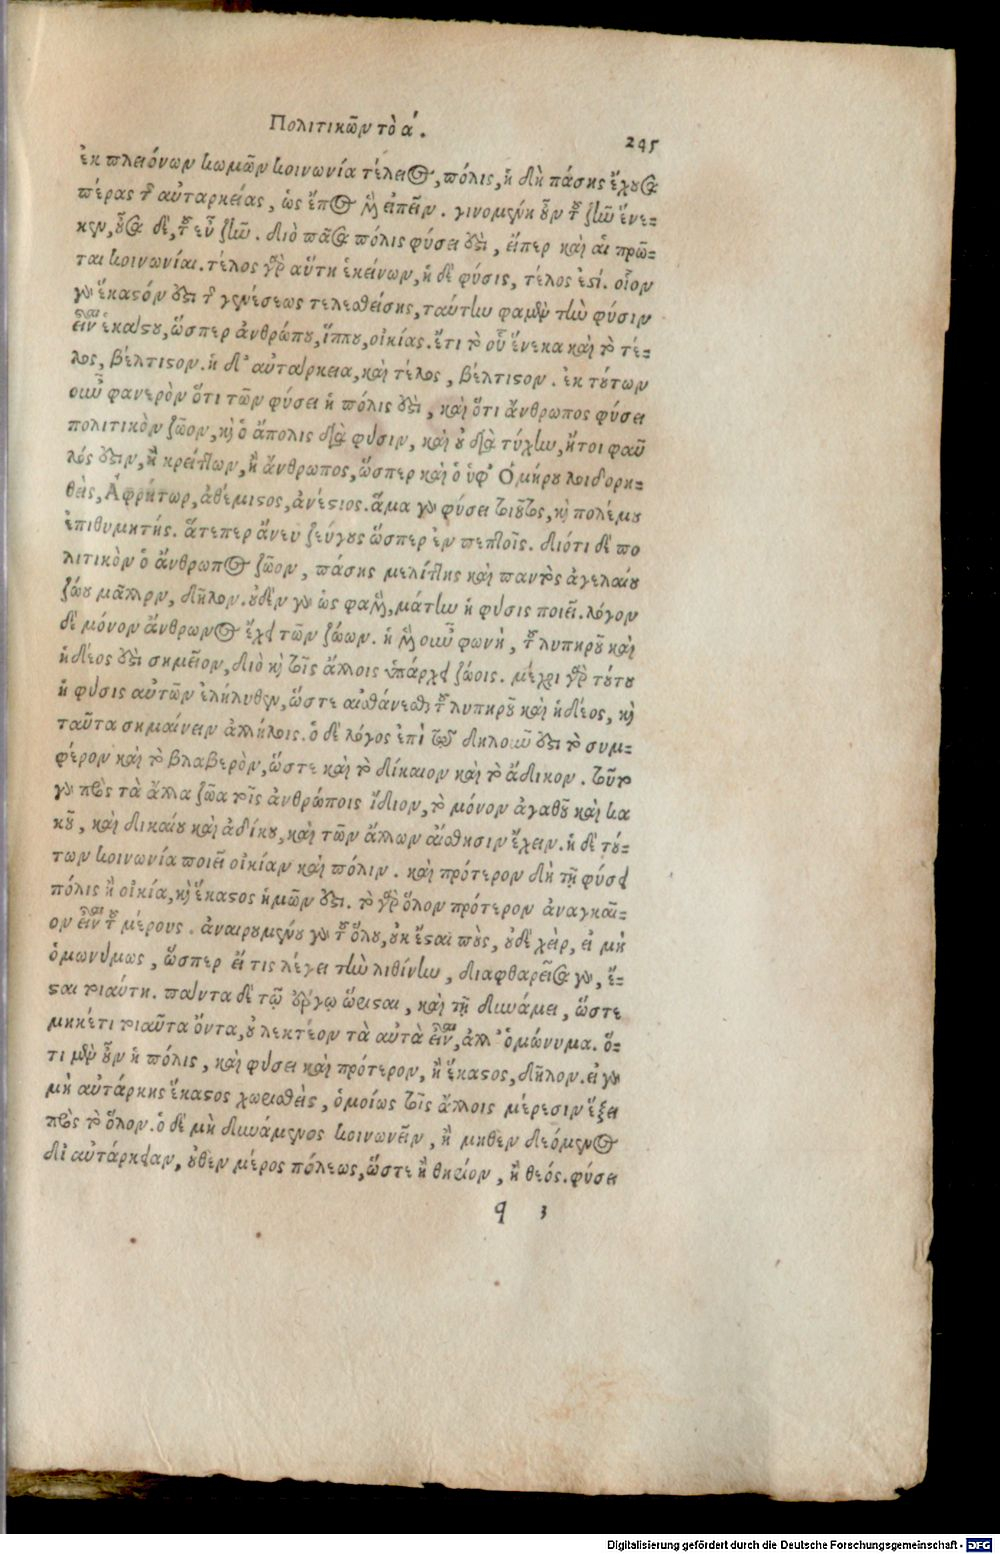 Πολιτικῶν τὸ ά.
245
ἐκ πλειόνων κωμῶν κοινωνία τέλειος, πόλις, ἡ δὴ πάσης ἔχουσα
πέρας τῆς αὐταρκείας, ὡς ἔπος μὲν εἰπεῖν. γινομένη οὖν τοῦ ζῆν ἕνε-
κεν, οὖσα δὲ, τοῦ εὖ ζῆν. διὸ πᾶσα πόλις φύσει ἐστὶ, εἴπερ καὶ αἱ πρῶ-
ται κοινωνίαι. τέλος γὰρ αὕτη ἐκείνων, ἡ δὲ φύσις, τέλος ἐστί. οἷον
γὰρ ἕκαστόν ἐστι τῆς γενέσεως τελεσθείσης, ταύτην φαμὲν τὴν φύσιν
εἶναι ἑκάστου, ὥσπερ ἀνθρώπου, ἵππου, οἰκίας. ἔτι τὸ οὗ ἕνεκα καὶ τὸ τέ-
λος, βέλτιστον. ἡ δ' αὐτάρκεια, καὶ τέλος, βέλτιστον. ἐκ τούτων
οὖν φανερὸν ὅτι τῶν φύσει ἡ πόλις ἐστὶ, καὶ ὅτι ἄνθρωπος φύσει
πολιτικὸν ζῶον, καὶ ὁ ἄπολις διὰ φύσιν, καὶ οὐ διὰ τύχην, ἤτοι φαῦ
λός ἐστιν, ἢ κρείττων, ἢ ἄνθρωπος, ὥσπερ καὶ ὁ ὑφ' Ὁμήρου λοιδορη-
θεὶς, Ἀφρήτωρ, ἀθέμιστος, ἀνέστιος. ἅμα γὰρ φύσει τοιοῦτος, καὶ πολέμου
ἐπιθυμητής. ἅτεπερ ἄνευ ζεύγους ὥσπερ ἐν πεττοῖς. διότι δὲ πο
λιτικὸν ὁ ἄνθρωπος ζῶον, πάσης μελίττης καὶ παντὸς ἀγελαίου
ζώου μᾶλλον, δῆλον. οὐδὲν γὰρ ὡς φαμὲν, μάτην ἡ φύσις ποιεῖ. λόγον
δὲ μόνον ἄνθρωπος ἔχει τῶν ζώων. ἡ μὲν οὖν φωνὴ, τοῦ λυπηροῦ καὶ
ἡδέος ἐστὶ σημεῖον, διὸ καὶ τοῖς ἄλλοις ὑπάρχει ζώοις. μέχρι γὰρ τούτου
ἡ φύσις αὐτῶν ἐλήλυθεν, ὥστε αἰσθάνεσθαι τοῦ λυπηροῦ καὶ ἡδέος, καὶ
ταῦτα σημαίνειν ἀλλήλοις. ὁ δὲ λόγος ἐπὶ τῷ δηλοῦν ἐστι τὸ συμ-
φέρον καὶ τὸ βλαβερὸν, ὥστε καὶ τὸ δίκαιον καὶ τὸ ἄδικον. τοῦτο
γὰρ πρὸς τὰ ἄλλα ζῶα τοῖς ἀνθρώποις ἴδιον, τὸ μόνον ἀγαθοῦ καὶ κα
κοῦ, καὶ δικαίου καὶ ἀδίκου, καὶ τῶν ἄλλων αἴσθησιν ἔχειν. ἡ δὲ τού-
των κοινωνία ποιεῖ οἰκίαν καὶ πόλιν. καὶ πρότερον δὴ τῇ φύσει
πόλις ἢ οἰκία, καὶ ἕκαστος ἡμῶν ἐστι. τὸ γὰρ ὅλον πρότερον ἀναγκαῖ-
ον εἶναι τοῦ μέρους. ἀναιρουμένου γὰρ τοῦ ὅλου, οὐκ ἔσται ποὺς, οὐδὲ χεὶρ, εἰ μὴ
ὁμωνύμως, ὥσπερ εἴ τις λέγει τὴν λιθίνην, διαφθαρεῖσα γὰρ, ἔ-
σται τοιαύτη. πάντα δὲ τῷ ἔργῳ ὥρισται, καὶ τῇ δυνάμει, ὥστε
μηκέτι τοιαῦτα ὄντα, οὐ λεκτέον τὰ αὐτὰ εἶναι, ἀλλ' ὁμώνυμα. ὅ-
τι μὲν οὖν ἡ πόλις, καὶ φύσει καὶ πρότερον, ἢ ἕκαστος, δῆλον. εἰ γὰρ
μὴ αὐτάρκης ἕκαστος χωρισθεὶς, ὁμοίως τοῖς ἄλλοις μέρεσιν ἕξει
πρὸς τὸ ὅλον. ὁ δὲ μὴ δυνάμενος κοινωνεῖν, ἢ μηθὲν δεόμενος
δι' αὐτάρκειαν, οὐθὲν μέρος πόλεως, ὥστε ἢ θηρίον, ἢ θεός. φύσει
q 3
Digitalisierung gefördert durch die Deutsche Forschungsgemeinschaft - DFG